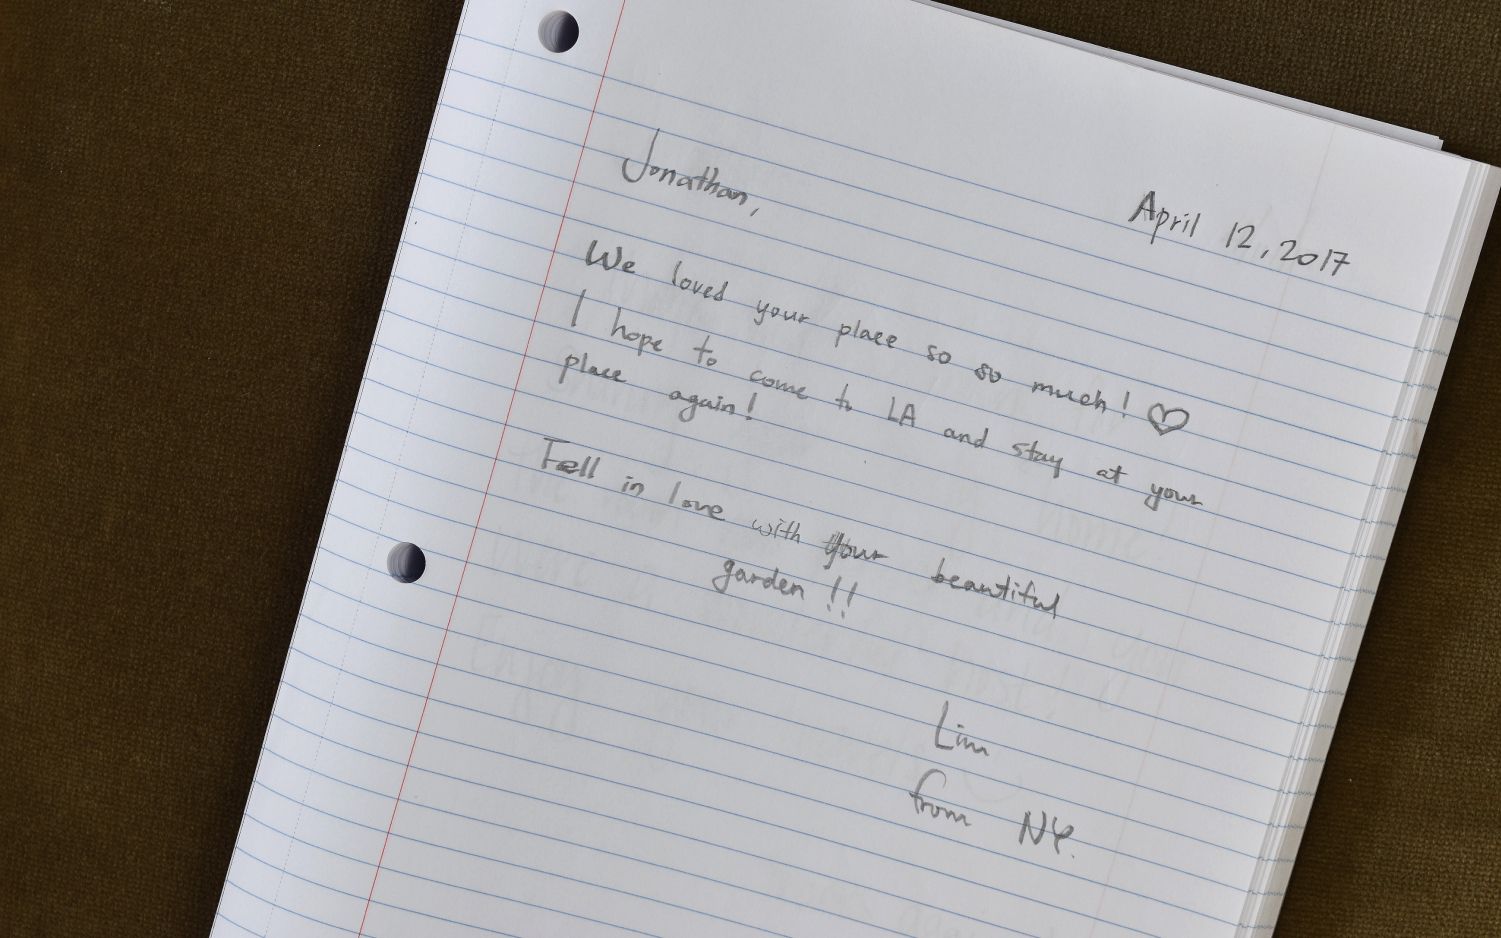 April 12, 2017
Jonathan,
We loved your place so so much! ♡
I hope to come to LA and stay at your
place again!
Fell in love with your beautiful
garden!!
Lim
from NY.